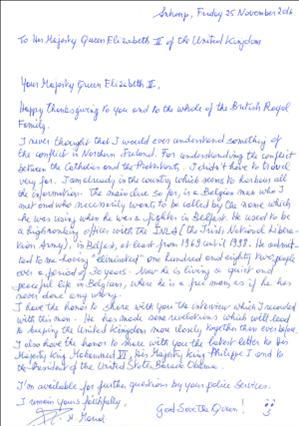 Antwerp, Friday 25 November 2016
To Her Majesty Queen Elizabeth II of the United Kingdom
Your Majesty Queen Elizabeth II,
Happy Thanksgiving to you and to the whole of the British Royal
Family.
I never thought that I would ever understand something of
the conflict in Northern Ireland. For understanding the conflict
between the Catholics and the Protestants, I didn't have to travel
very far. I am already in the country which seems to harbour all
the information. The main clue so far, is a Belgian man who I
met and who necessarily wants to be called by the name which
he was using when he was a fighter in Belfast. He used to be
a high ranking officer with the INLA (the Irish National Libera-
tion Army), in Belfast, at least from 1969 until 1998. He admit-
ted to me having "eliminated" one hundred and eighty two people
over a period of 30 years. Now he is living a quiet and
peaceful life in Belgium, where he is a free man as if he has
never done any wrong.
I have the honor to share with you the interview which I recorded
with this man. He has made some revelations which will lead
to keeping the United Kingdom more closely together than ever before.
I also have the honor to share with you the latest letter to His
Majesty King Mohammed VI, His Majesty King Philippe I and to
the President of the United States Barack Obama.
I'm available for further questions by your police services.
I remain yours faithfully,
God Save The Queen!